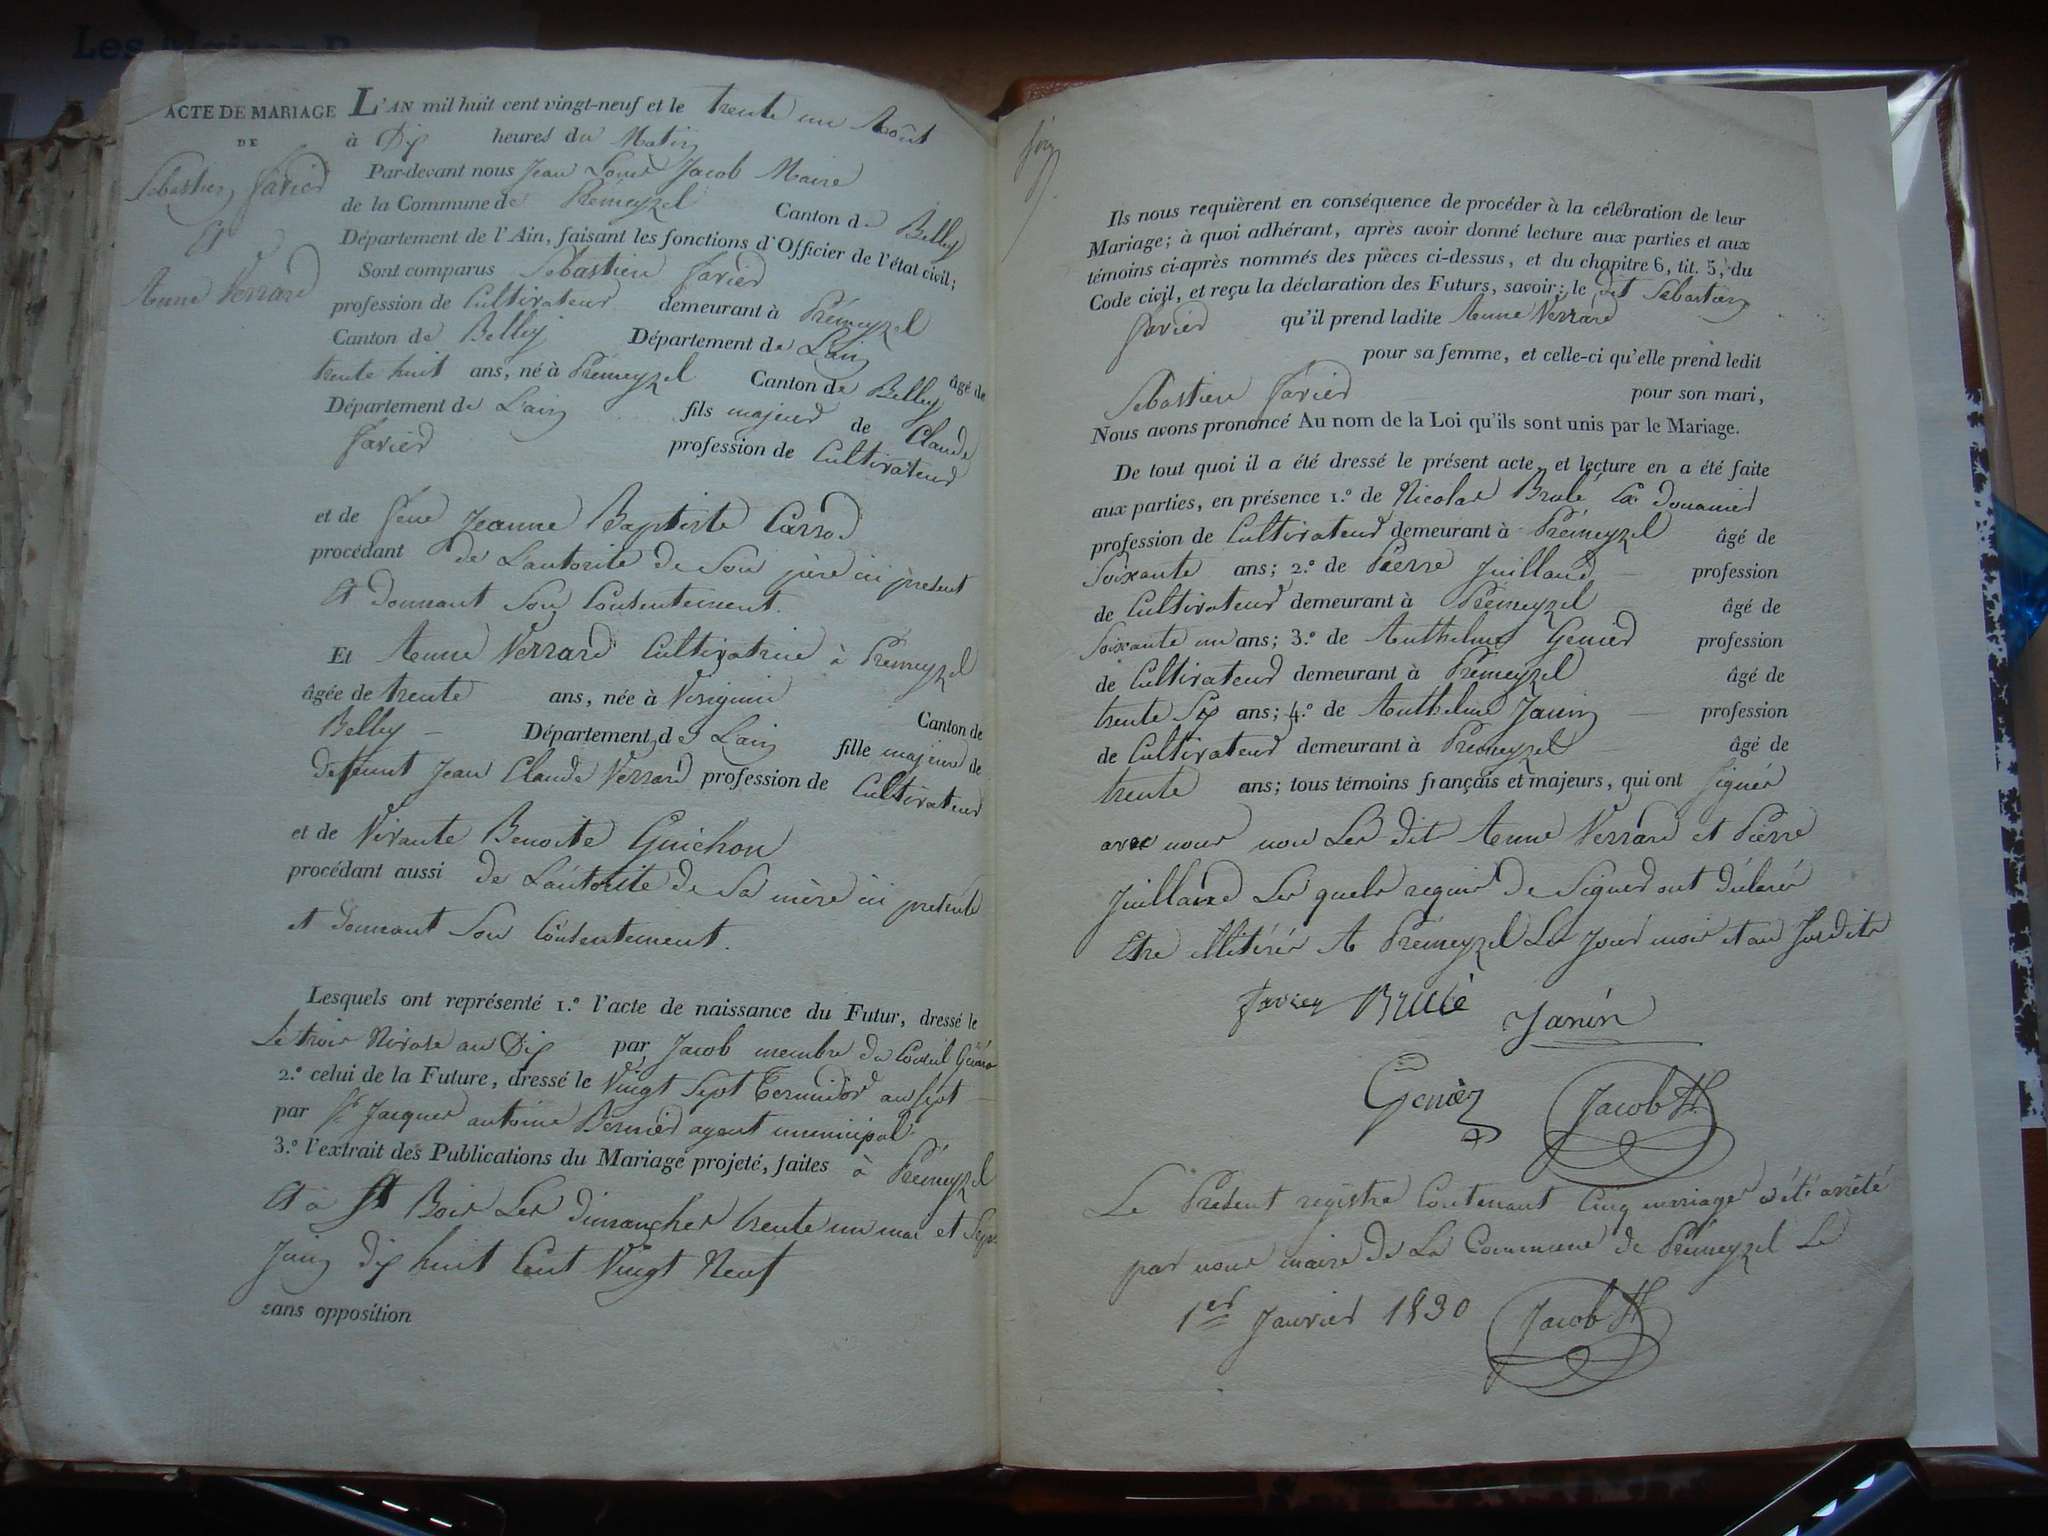 ACTE DE MARIAGE
DE
Sebastien Favier
Et
Anne Verrard
L'AN mil huit cent vingt-neuf et le trente un Août
à Dix heures du Matin
Par-devant nous Jean Louis Jacob Maire
de la Commune de Prémeyzel Canton de Belley
Département de l'Ain, faisant les fonctions d'Officier de l'état civil;
Sont comparus Sébastien Favier
profession de Cultivateur demeurant à Prémeyzel
Canton de Belley Département de Lain âgé de
trente huit ans, né à Prémeyzel Canton de Belley
Département de Lain fils majeur de Claude
Favier profession de Cultivateur
et de feue Jeanne Baptiste Carrod
procédant de Lautorité de Son père ici présent
Et donnant Son Consentement.
Et Anne Verrard Cultivatrice à Prémeyzel
âgée de trente ans, née à Virignin Canton de
Belley Département de Lain fille majeure de
defunt Jean Claude Verrard profession de Cultivateur
et de Vivante Benoite Guichon
procédant aussi de Lautorité de Sa mère ici présente
et donnant Son Consentement.
Lesquels ont représenté 1.º l'acte de naissance du Futur, dressé le
Le trois Nivose an Dix par Jacob membre du Conseil Général
2.º celui de la Future, dressé le Vingt Sept Termidor an Sept
par Sr Jacques antoine Bernier agent municipal.
3.º l'extrait des Publications du Mariage projeté, faites à Prémeyzel
Et à St Bois Les dimanches trente un mai et Sept
Juin dix huit Cent Vingt Neuf
sans opposition
Ils nous requièrent en conséquence de procéder à la célébration de leur
Mariage; à quoi adhérant, après avoir donné lecture aux parties et aux
témoins ci-après nommés des pièces ci-dessus, et du chapitre 6, tit. 5, du
Code civil, et reçu la déclaration des Futurs, savoir: le dit Sébastien
Favier qu'il prend ladite Anne Verrard
pour sa femme, et celle-ci qu'elle prend ledit
Sebastien Favier pour son mari,
Nous avons prononcé Au nom de la Loi qu'ils sont unis par le Mariage.
De tout quoi il a été dressé le présent acte, et lecture en a été faite
aux parties, en présence 1.º de Nicolas Brulé Ex douanier
profession de Cultivateur demeurant à Prémeyzel âgé de
Soixante ans; 2.º de Pierre Juilland profession
de Cultivateur demeurant à Prémeyzel âgé de
Soixante un ans; 3.º de Anthelme Genier profession
de Cultivateur demeurant à Prémeyzel âgé de
trente Six ans; 4.º de Anthelme Janin profession
de Cultivateur demeurant à Prémeyzel âgé de
trente ans; tous témoins français et majeurs, qui ont Signés
avec nous non Les dit Anne Verrard et Pierre
Juilland Les quels requis de Signer ont déclarés
Etre illitérés A Prémeyzel Les jour mois et an Susdits
Favier Brulé Janin
Genier Jacob
Le Présent registre Contenant Cinq mariages a été arrêté
par nous maire de La Commune de Prémeyzel Le
1er Janvier 1830 Jacob